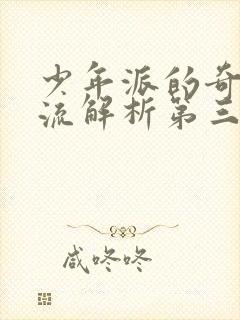 少年派的奇
流解析第三
咸咚咚